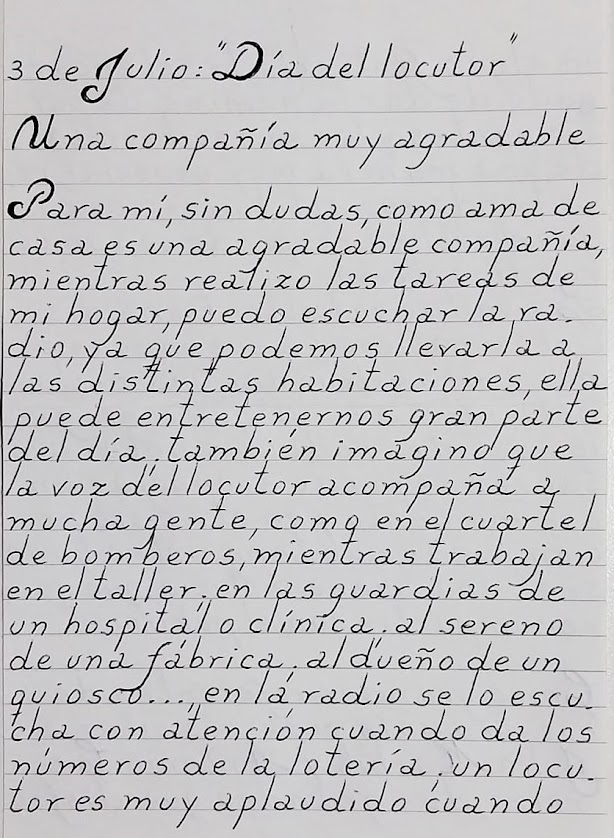 3 de Julio: "Día del locutor"
Una compañía muy agradable
Para mí, sin dudas, como ama de
casa es una agradable compañía,
mientras realizo las tareas de
mi hogar, puedo escuchar la ra-
dio, ya que podemos llevarla a
las distintas habitaciones, ella
puede entretenernos gran parte
del día; también imagino que
la voz del locutor acompaña a
mucha gente, como en el cuartel
de bomberos, mientras trabajan
en el taller; en las guardias de
un hospital o clínica; al sereno
de una fábrica; al dueño de un
quiosco..., en la radio se lo escu-
cha con atención cuando da los
números de la lotería; un locu-
tor es muy aplaudido cuando